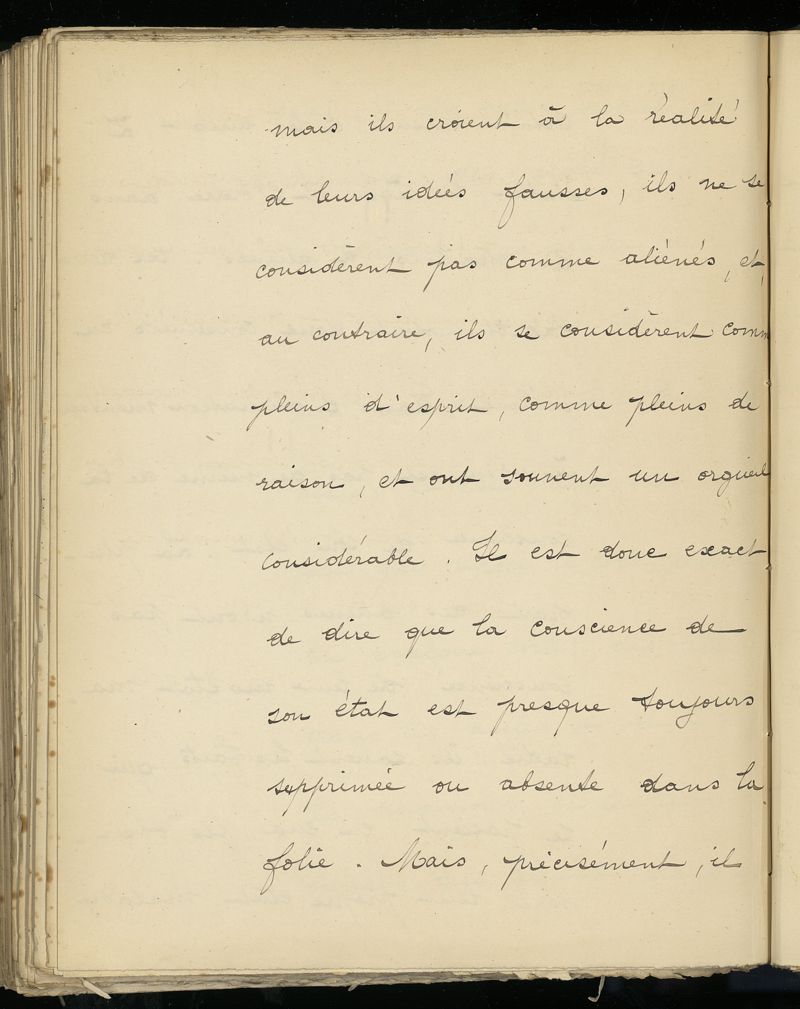 mais ils croient à la réalité
de leurs idées fausses, ils ne se
considèrent pas comme aliénés, et,
au contraire, ils se considèrent comm
pleins d'esprit, comme pleins de
raison, et ont souvent un orgueil
considérable. Il est donc exact
de dire que la conscience de
son état est presque toujours
supprimée ou absente dans la
folie. Mais, précisément, il